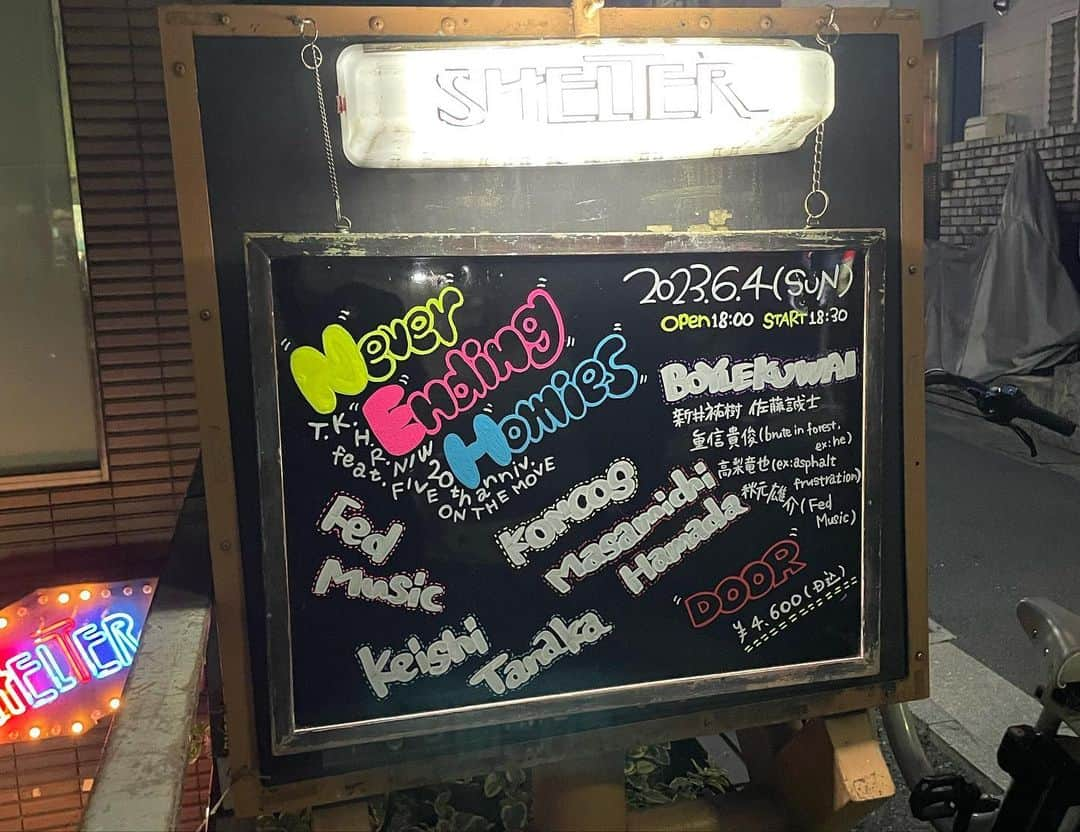 SHELTER
2023.6.4(SUN)
OPEN 18:00 START 18:30
Never
Ending
Homies
T.K.H.R.N/W
feat. 20th anniv.
FIVE ON THE MOVE
Fed
Music
KOMOOG
Masamichi
Hamada
Keishi
Tanaka
BOYLEKUWAI
新井祐樹 佐藤誠士
重信貴俊(brute in forest,
ex:he)
高梨竜也(ex:asphalt
frustration)
秋元雄
介(Fed
Music)
DOOR
¥4.600(D込)
SHELTER